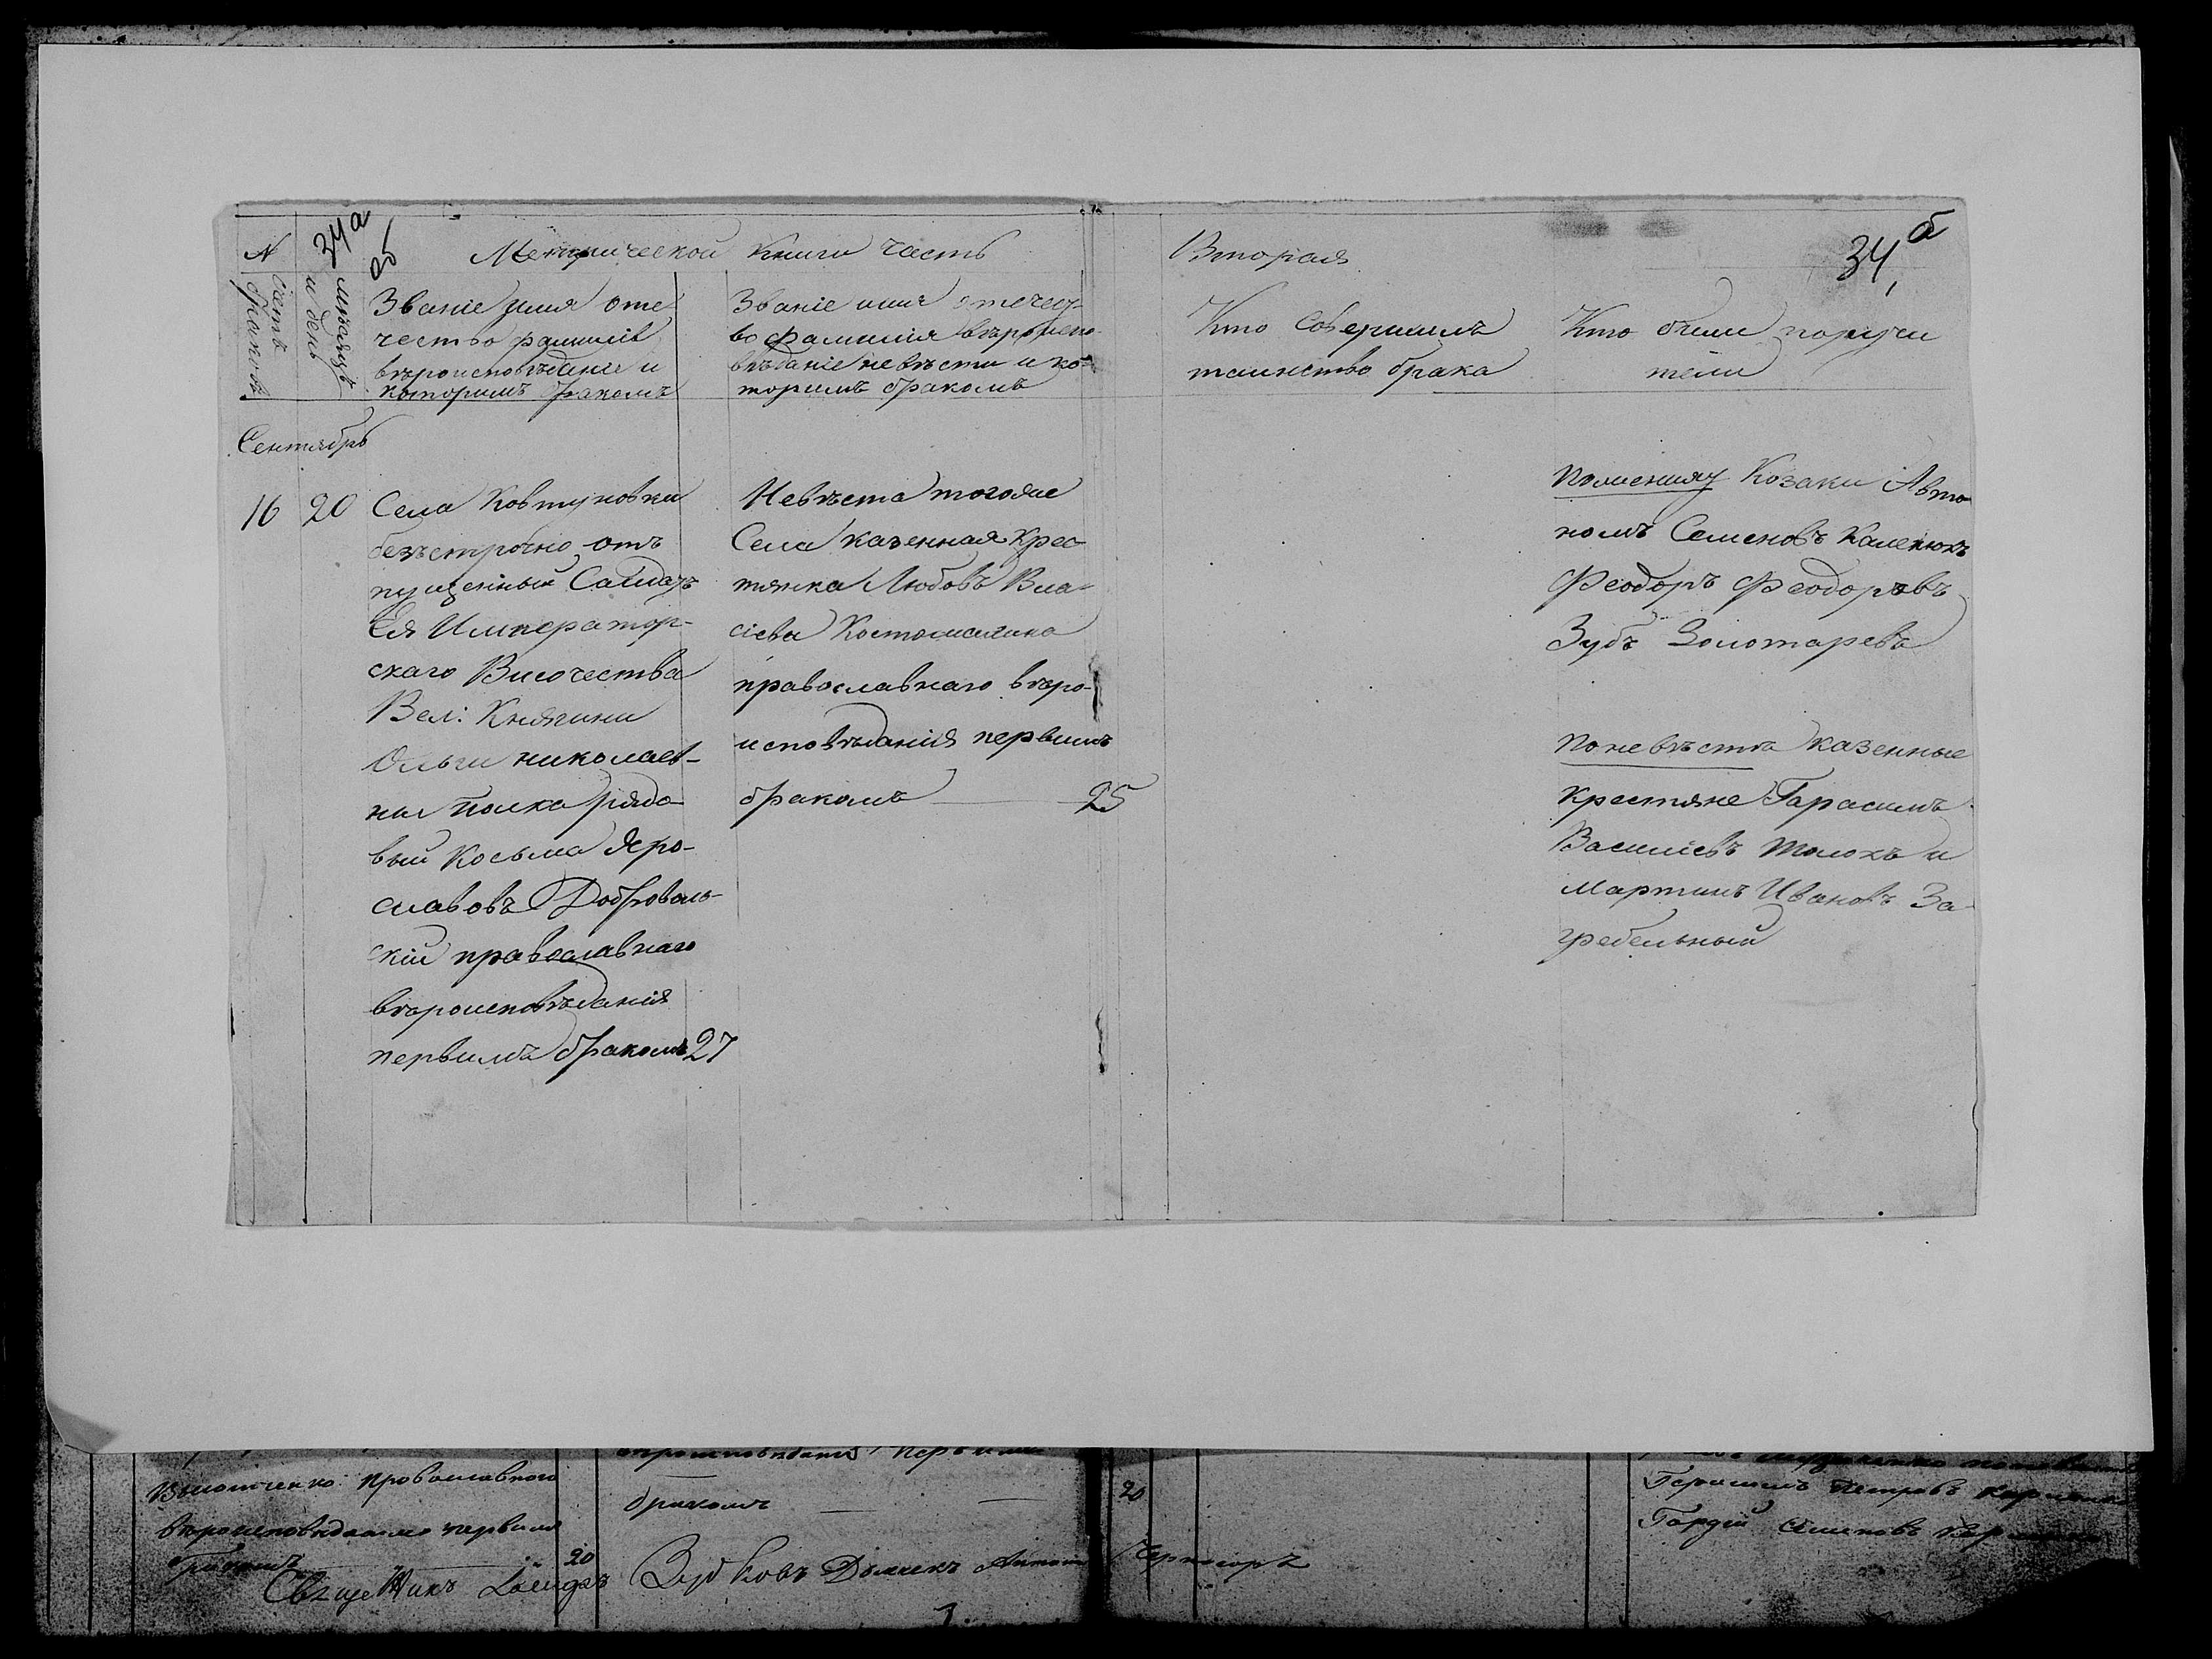 34 а
об
34, б
Метрической Книги Часть
Вторая
№
Счетъ
браковъ
мѣсяцъ
и день
Званіе имя оте-
чество фамилія
вѣроисповѣданія и
которимъ бракомъ
Званіе имя отечест-
во фамилія вѣроиспо-
вѣданіе невѣсти и ко-
торимъ бракомъ
Кто Совершилъ
таинство брака
Кто были поручи
тели
Сентябрь
16
20
Села Ковтуновки
безъсрочно от
пущенный Солдатъ
Ея Император-
скаго Височества
Вел: Княгини
Ольги николаев-
ны Полка рядо-
вый Косьма Яро-
славовъ Доброволь-
скій православнаго
вѣроисповѣданія
первимъ бракомъ 27
Невѣста тогоже
Села казенная крес-
тянка Любовъ Вла-
сіева
православнаго вѣро-
исповѣданія первимъ
бракомъ 25
По жениху Козаки Авто-
номъ Семеновъ Каленюкъ
Феодоръ Феодоровъ
Зубъ Золотаревъ
По невѣстѣ казенные
крестяне Гарасимъ
Василіевъ Толокъ и
Мартинъ Ивановъ За-
гребельный
православнаго
вѣроисповѣданія первимъ
бракомъ
20
вѣроисповѣданія первимъ
бракомъ
20
Гарасимъ Петровъ
Гордѣй Семеновъ
Священикъ